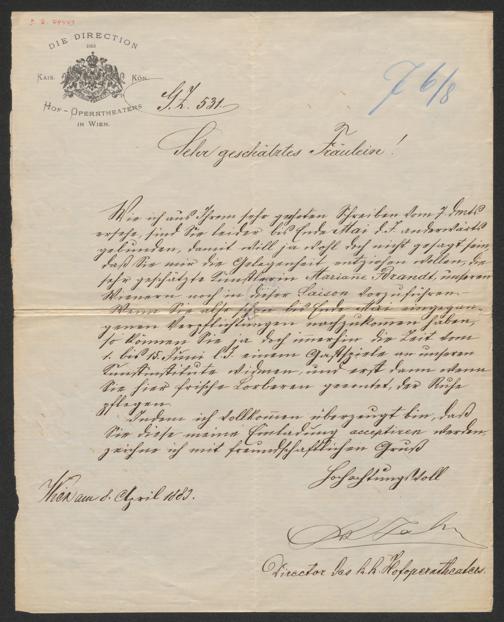 DIE DIRECTION
DES
KAIS. KÖN.
HOF-OPERNTHEATERS
IN WIEN.
G.Z. 531.
7 6/8
Sehr geschätztes Fräulein!
Wie ich aus Ihrem sehr geehrten Schreiben vom 7. dMts
ersehe, sind Sie leider bis Ende Mai d.J. anderwärts
gebunden, damit will ja wohl doch nicht gesagt sein,
daß Sie mir die Gelegenheit entziehen wollen, die
sehr geschätzte Künstlerin Mariane Brandt, unseren
Wienern noch in dieser Saison vorzuführen.
Wenn Sie also bis Ende Mai eingegan-
genen Verpflichtungen nachzukommen haben,
so können Sie ja doch immerhin die Zeit vom
1. bis 15. Juni l.J. einem Gastspiele an unserem
Kunstinstitute widmen, und erst dann wenn
Sie hier frische Lorberen geerntet, der Ruhe
pflegen.
Indem ich vollkommen überzeugt bin, daß
Sie diese meine Einladung acceptiren werden,
zeichne ich mit freundschaftlichem Gruß
Hochachtungsvoll
Wien am 8. April 1883.
Jahn
Director des k.k. Hofoperntheaters.